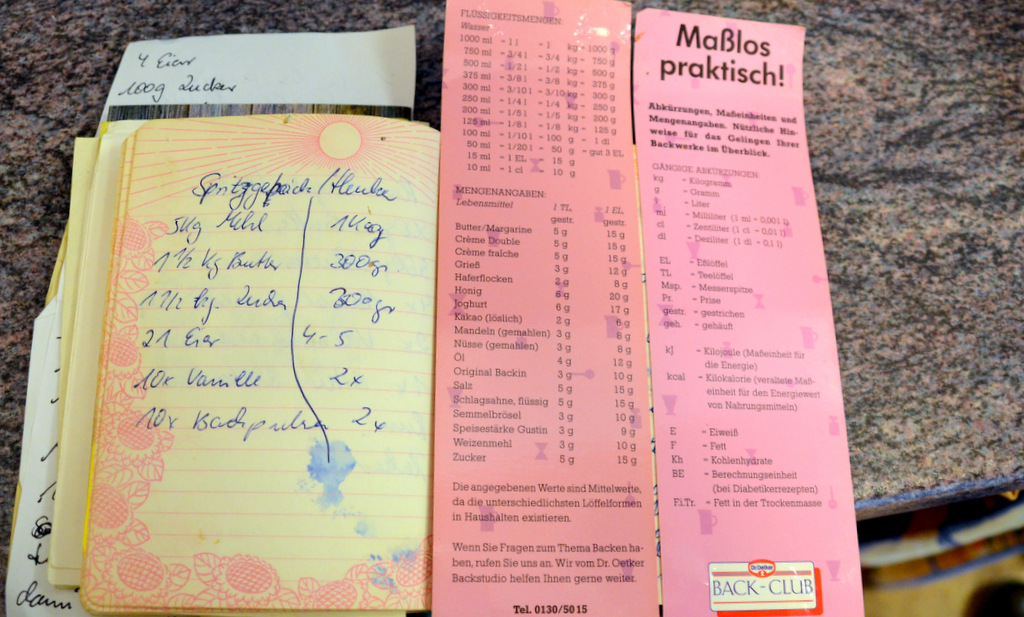 4 Eier
100g Zucker
Spritzgepäck / Menka
5kg Mehl 1 kg
1 1/2 kg Butter 300gr.
1 1/2 kg. Zucker 300gr
21 Eier 4-5
10x Vanille 2x
10x Backpulver 2x
dann
FLÜSSIGKEITSMENGEN:
Wasser
1000 ml = 1 l = 1 kg = 1000 g
750 ml = 3/4 l = 3/4 kg = 750 g
500 ml = 1/2 l = 1/2 kg = 500 g
375 ml = 3/8 l = 3/8 kg = 375 g
300 ml = 3/10 l = 3/10 kg = 300 g
250 ml = 1/4 l = 1/4 kg = 250 g
200 ml = 1/5 l = 1/5 kg = 200 g
125 ml = 1/8 l = 1/8 kg = 125 g
100 ml = 1/10 l = 100 g = 1 dl
50 ml = 1/20 l = 50 g = gut 3 EL
15 ml = 1 EL 15 g
10 ml = 1 cl 10 g
MENGENANGABEN:
Lebensmittel 1 TL gestr. 1 EL gestr.
Butter/Margarine 5 g 15 g
Crème Double 5 g 15 g
Crème fraîche 5 g 15 g
Grieß 3 g 12 g
Haferflocken 2 g 8 g
Honig 6 g 20 g
Joghurt 6 g 17 g
Kakao (löslich) 2 g 6 g
Mandeln (gemahlen) 3 g 8 g
Nüsse (gemahlen) 3 g 8 g
Öl 4 g 12 g
Original Backin 3 g 10 g
Salz 5 g 15 g
Schlagsahne, flüssig 5 g 15 g
Semmelbrösel 3 g 10 g
Speisestärke Gustin 3 g 9 g
Weizenmehl 3 g 10 g
Zucker 5 g 15 g
Die angegebenen Werte sind Mittelwerte,
da die unterschiedlichsten Löffelformen
in Haushalten existieren.
Wenn Sie Fragen zum Thema Backen ha-
ben, rufen Sie uns an. Wir vom Dr. Oetker
Backstudio helfen Ihnen gerne weiter.
Tel. 0130/50 15
Maßlos
praktisch!
Abkürzungen, Maßeinheiten und
Mengenangaben. Nützliche Hin-
weise für das Gelingen Ihrer
Backwerke im Überblick.
GÄNGIGE ABKÜRZUNGEN:
kg = Kilogramm
g = Gramm
l = Liter
ml = Milliliter (1 ml = 0,001 l)
cl = Zentiliter (1 cl = 0,01 l)
dl = Deziliter (1 dl = 0,1 l)
EL = Eßlöffel
TL = Teelöffel
Msp. = Messerspitze
Pr. = Prise
gestr. = gestrichen
geh. = gehäuft
kJ = Kilojoule (Maßeinheit für
die Energie)
kcal = Kilokalorie (veraltete Maß-
einheit für den Energiewert
von Nahrungsmitteln)
E = Eiweiß
F = Fett
Kh = Kohlenhydrate
BE = Berechnungseinheit
(bei Diabetikerrezepten)
F.i.Tr. = Fett in der Trockenmasse
Dr. Oetker
BACK-CLUB